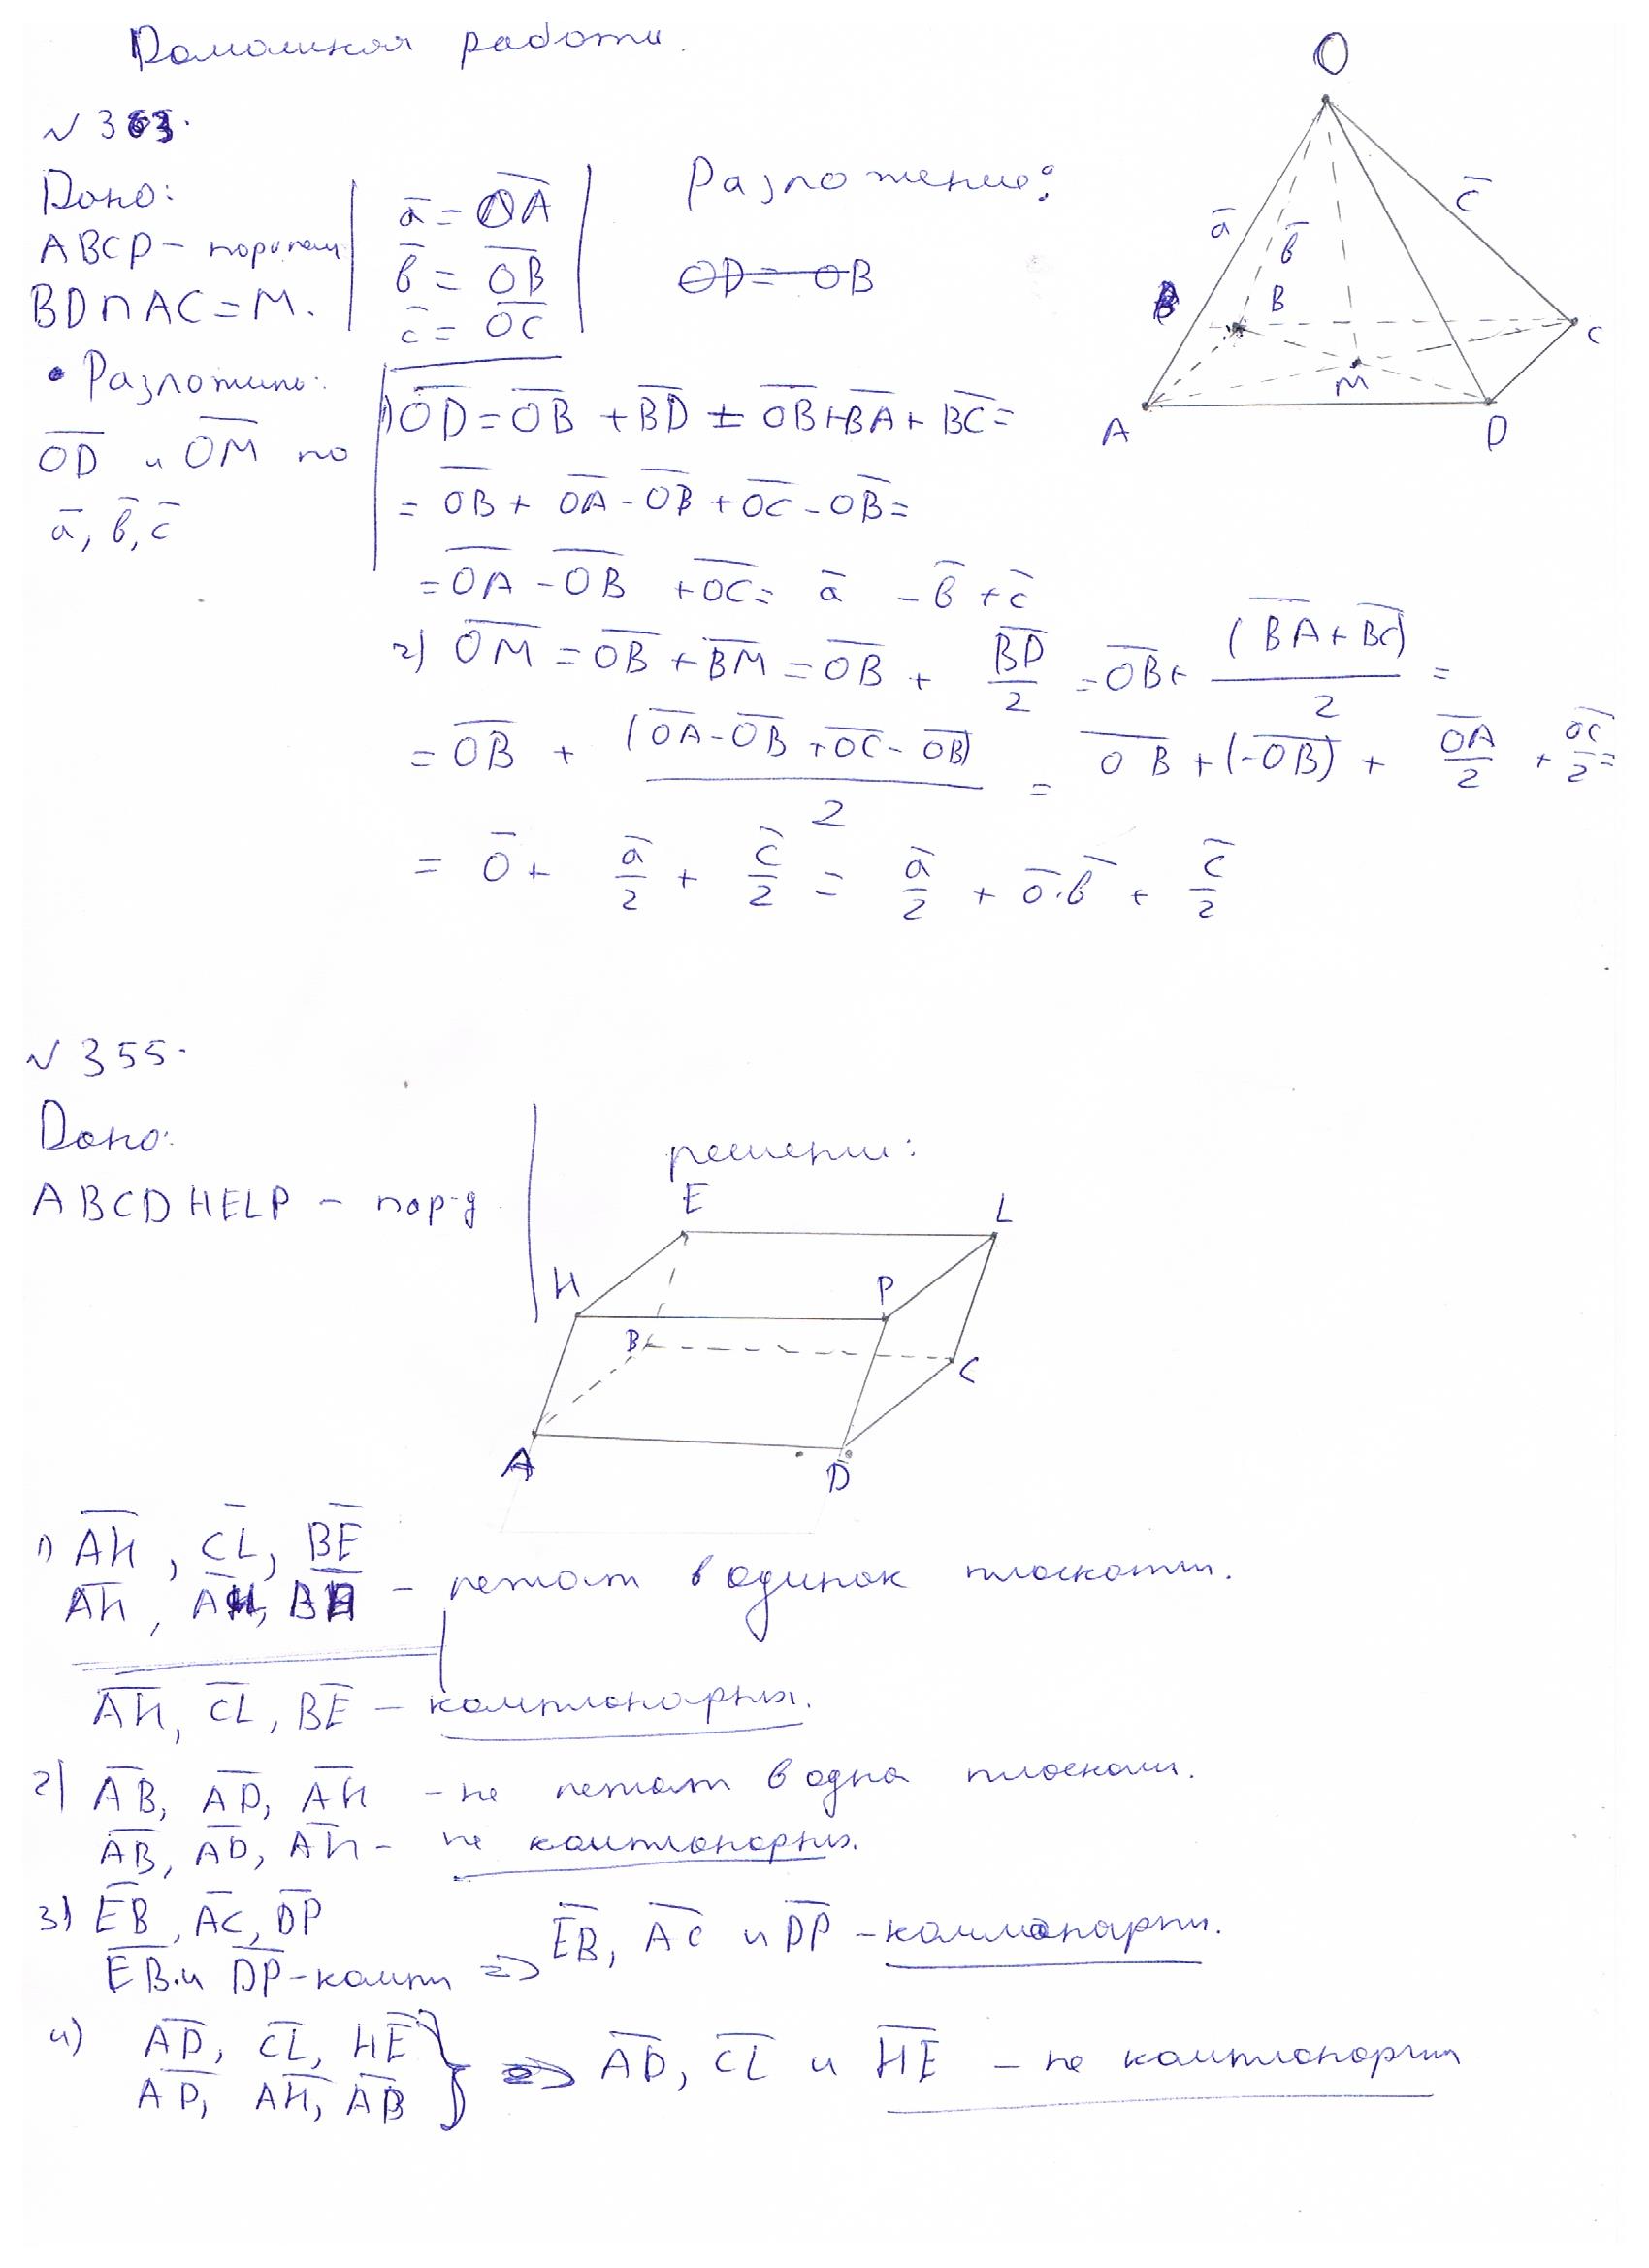 Домашняя работа.
√ 363.
Дано:
ABCD - паралел
BD∩AC = M.
• Разложить:
OD и OM по
a, b, c
a = OA
b = OB
c = OC
Разложение:
OD = OB
1) OD = OB + BD = OB + BA + BC =
= OB + OA - OB + OC - OB =
= OA - OB + OC = a - b + c
2) OM = OB + BM = OB + BD/2 = OB + (BA + BC)/2 =
= OB + (OA - OB + OC - OB)/2 = OB + (-OB) + OA/2 + OC/2 =
= 0 + a/2 + c/2 = a/2 + 0·b + c/2
O
a
b
c
B
C
M
A
D
√ 355.
Дано:
ABCDHELP - пар-д
решение:
E
L
H
P
B
C
A
D
1) AH, CL, BE
AH, AH, BE - лежат в одной плоскости.
AH, CL, BE - компланарны.
2) AB, AD, AH - не лежат в одна плоскости.
AB, AD, AH - не компланарны.
3) EB, AC, DP
EB и DP - комп => EB, AC и DP - компланарны.
4) AD, CL, HE
AD, AH, AB } => AD, CL и HE - не компланарны